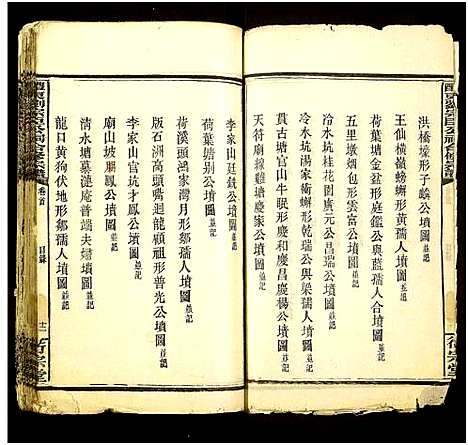 洪橋壕形子嶙公墳圖並記
王仙橫嶺螃蟹形黃孺人墳圖並記
荷葉塘盆形庭鑑公與藍孺人合墳圖並記
五里墩烟包形雲富公墳圖並記
冷水坑桂花園廣元公昌瑞公墳圖並記
冷水坑湯家衞蟹形乾瑞公與梁孺人墳圖並記
貫古塘官山牛眠形慶和慶昌慶楊公墳圖並記
天符廟線雞塘慶家公墳圖並記
荷葉塘別公墳圖並記
李家山廷銑公墳圖並記
李家官坑牛形鳳公墳圖並記
荷溪頭鴻家灣月形鄒孺人墳圖並記
版石洲高頭嘴迴龍顧祖形普光公墳圖並記
廟山坡鵬鳳公墳圖並記
清水塘墓漣庵普端夫婦墳圖並記
龍口黃狗伏地形鄒孺人墳圖並記
卷首
目錄
十二